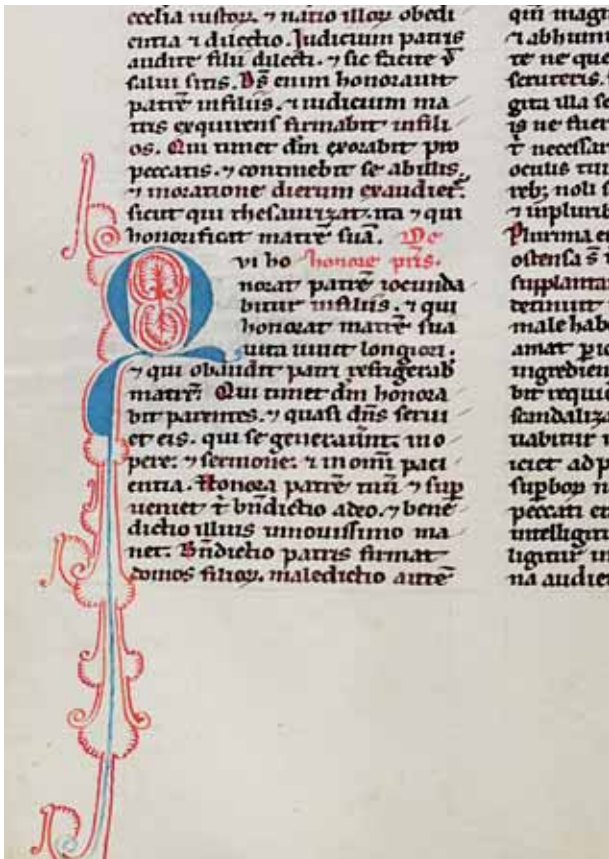 ecclia iustoꝝ. ⁊ natio illoꝝ obedi
entia ⁊ dilectio. Iudicium patris
audite filii dilecti. ⁊ sic facite ut
salui sitis. Ds̄ enim honorauit
patrē in filiis. ⁊ iudicium ma
tris exquirens firmabit in fili
os. Qui timet dm̄ exorabit pro
peccatis. ⁊ continebit se ab illis.
⁊ in oratione dierum exaudiet̄.
sicut qui thesaurizat. ita ⁊ qui
honorificat matrē suā. De
Q vi ho honore pr̄is.
norat patrē iocunda
bitur in filiis. ⁊ qui
honorat matrē sua
uita uiuet longiori.
⁊ qui obaudit patri refrigerab
matrē. Qui timet dm̄ honora
bit parentes. ⁊ quasi dn̄is serui
et eis. qui se generauūnt. in o
pere. ⁊ sermone. ⁊ in omī paci
entia. Honora patrē tuū ⁊ sup
ueniet t̄ bn̄dictio a deo. ⁊ bene
dictio illius in nouissimo ma
net. Bn̄dictio patris firmat
domos filioꝝ. maledictio autē
qm̄ magn
⁊ ab hum
te ne que
scruteris.
gita illa se
is ne fuer
t̄ necessar
oculis tui
reb; noli s
⁊ in plurib
Plurima en
ostensa s̄ t
supplantau
detinuit
male hab
amat pic
ingredien
bit requie
scandaliza
uabitur i
iciet ad p
supboꝝ n
peccati e
intelligit
ligitur in
na audiet